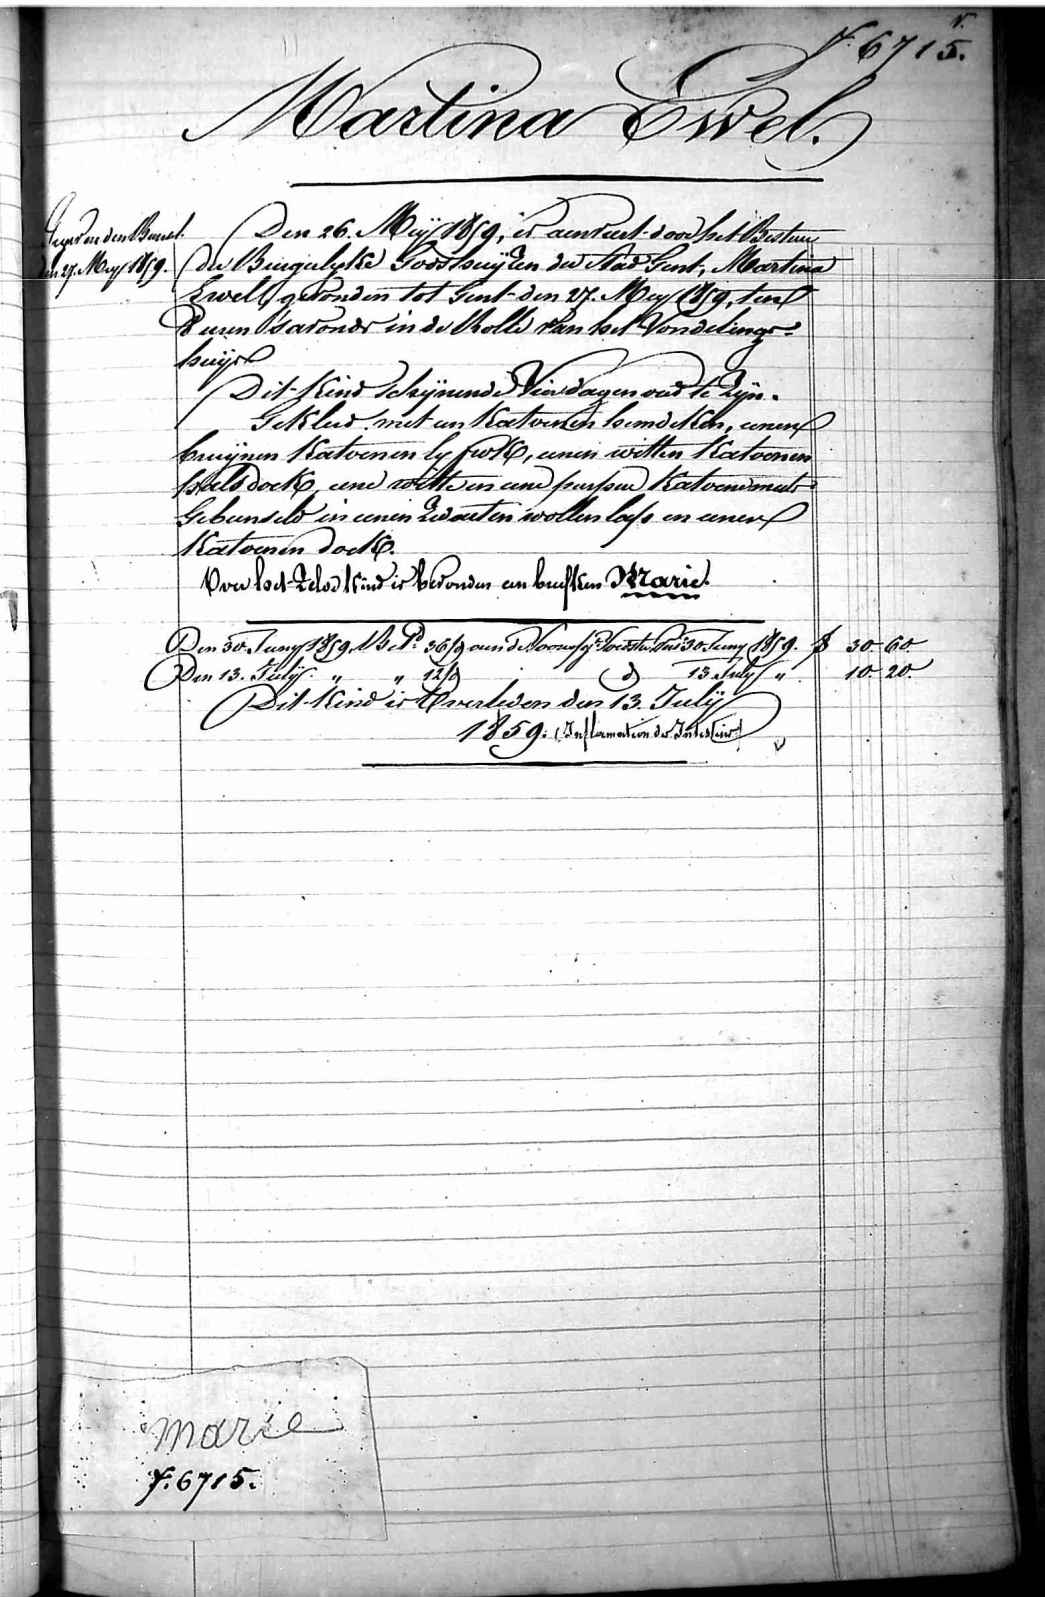 N.
F. 6715.
Martina Ewel.
den 27. Mey 1859.
Den 26. Meÿ 1859, is aenveert door het Bestuer
der Burgerlyke Godshuÿzen der stad Gent, Martina
Ewel, gevonden tot Gent den 27. Meÿ 1859, ten
8 uren 's avonds in de Rolle van het Vondelings-
huÿs
Dit kind schynende Vier dagen oud te zyn.
Gekleed met een katoenen hemdeken, eenen
bruÿnen katoenen lyfrok, eenen witten katoenen
halsdoek, eene witte en eene purpere katoene muts
Gebunseld in eenen zwarten wollen lap en eenen
katoenen doek.
Over het zelve kind is bevonden een briefken Marie.
Den 30. Juny 1859. 36 30 Juny 1859. F 30 60
Den 13. Julÿ. " " 12 d° 13 July " 10. 20.
Dit kind is Overleden den 13. Julÿ
1859.
marie
F. 6715.